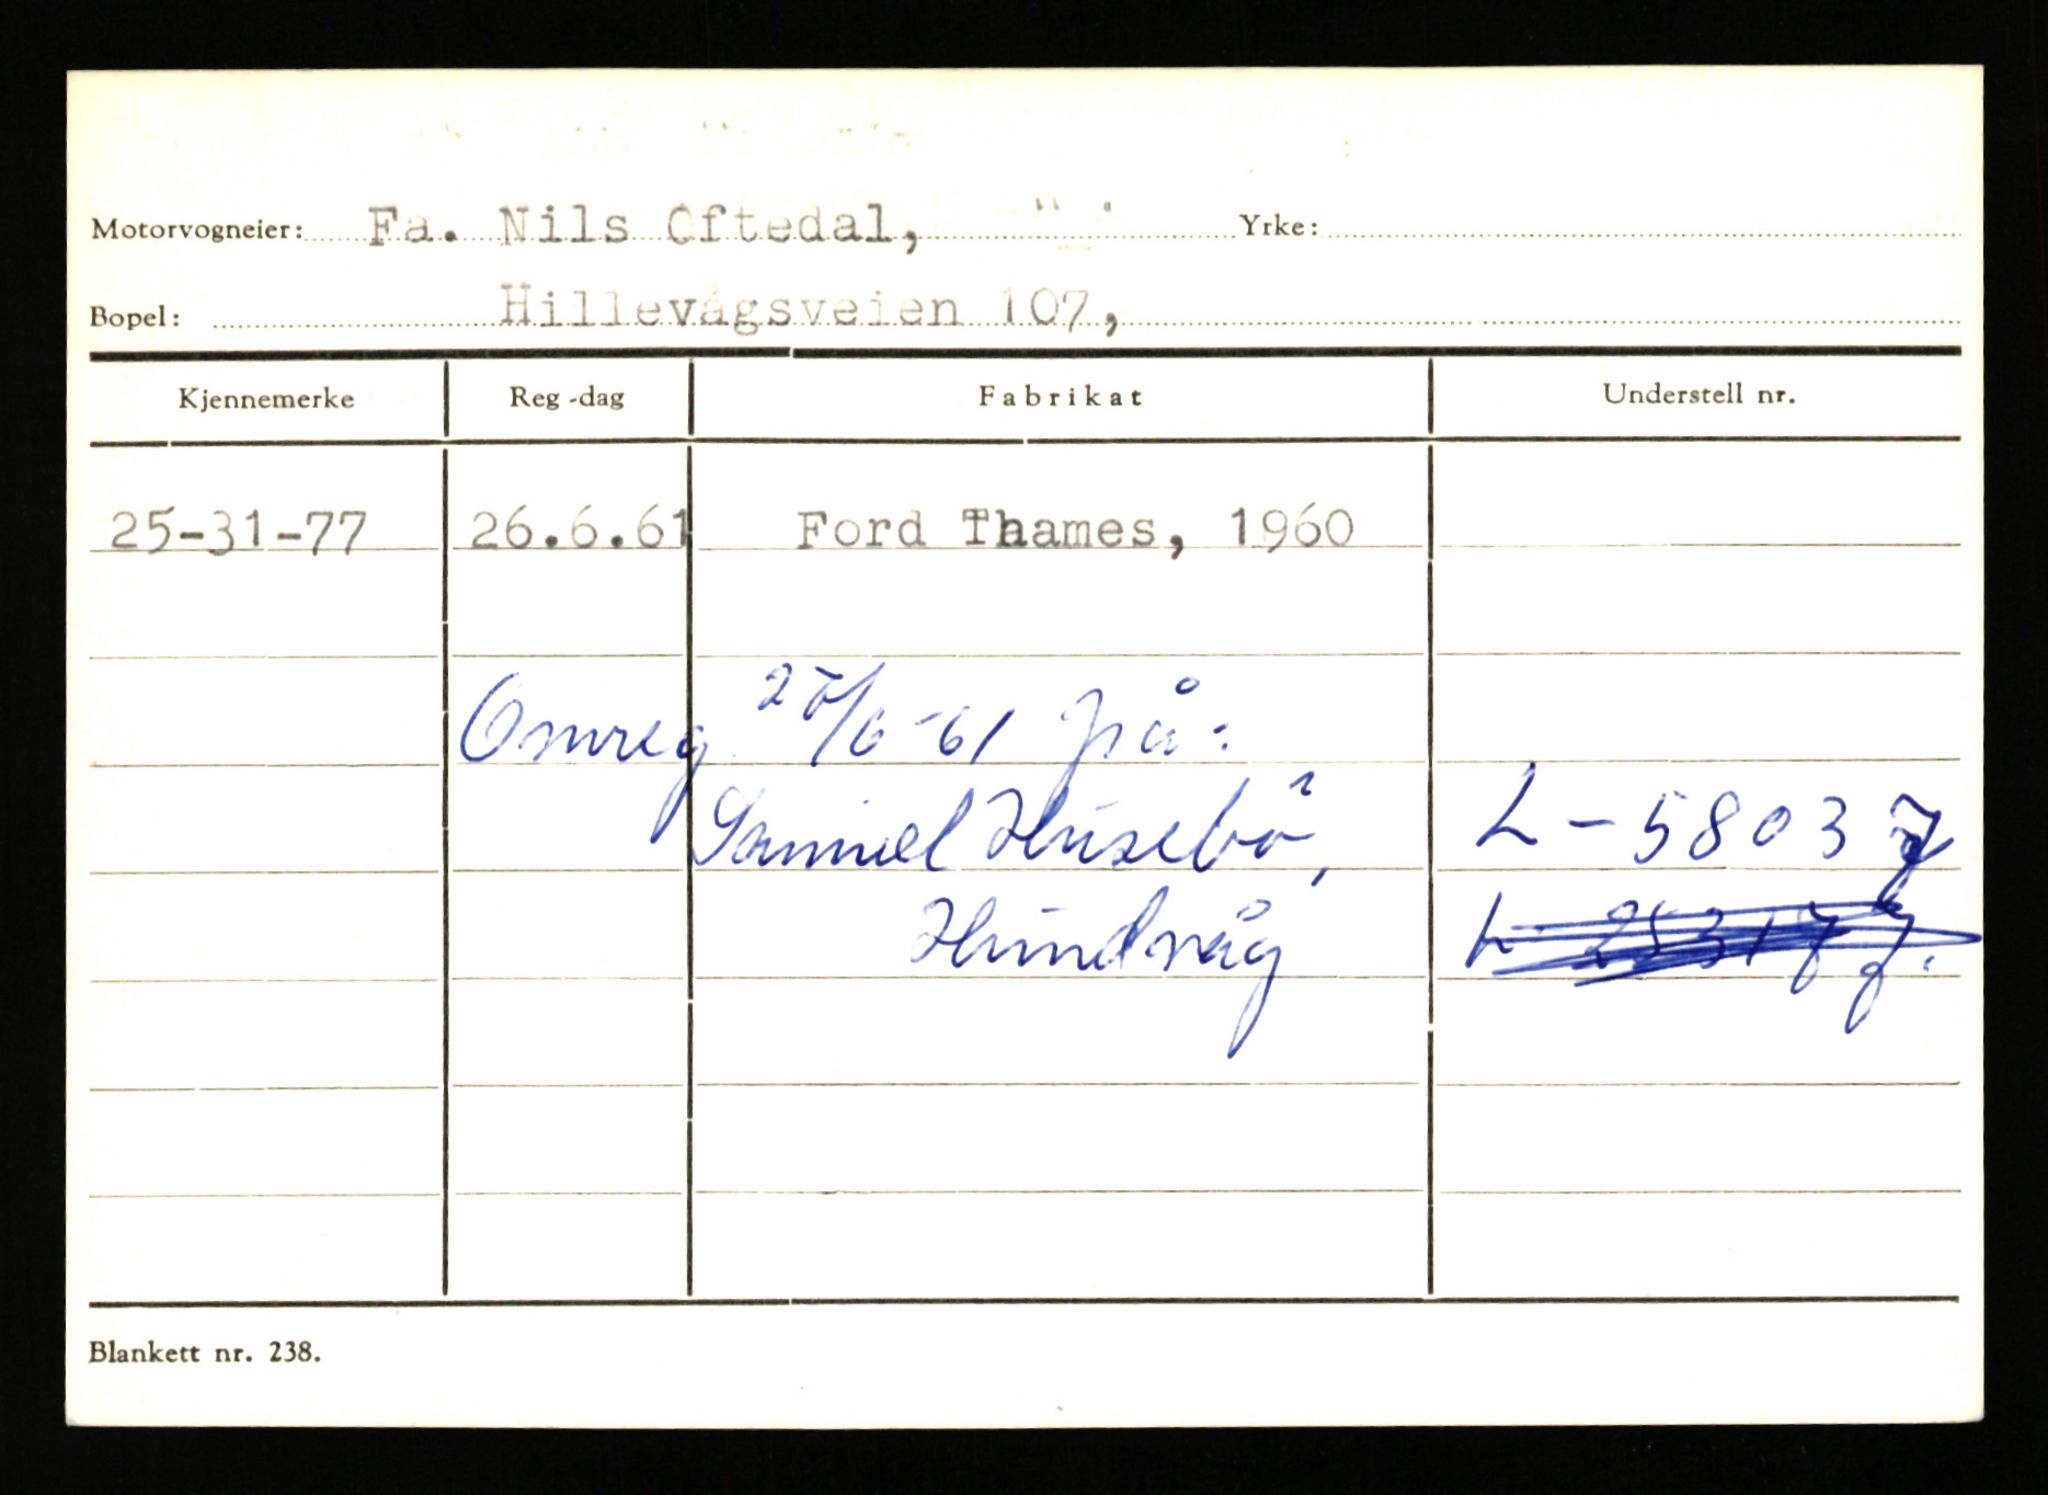 Motorvogneier: Fa. Nils Oftedal, Yrke:
Bopel: Hillevågsveien 107,
Kjennemerke Reg-dag Fabrikat Understell nr.
25-31-77 26.6.61 Ford Thames, 1960
Omreg 27/6-61 på:
Samuel Husebö, L-58037
Hundvåg L-253177.
Blankett nr. 238.